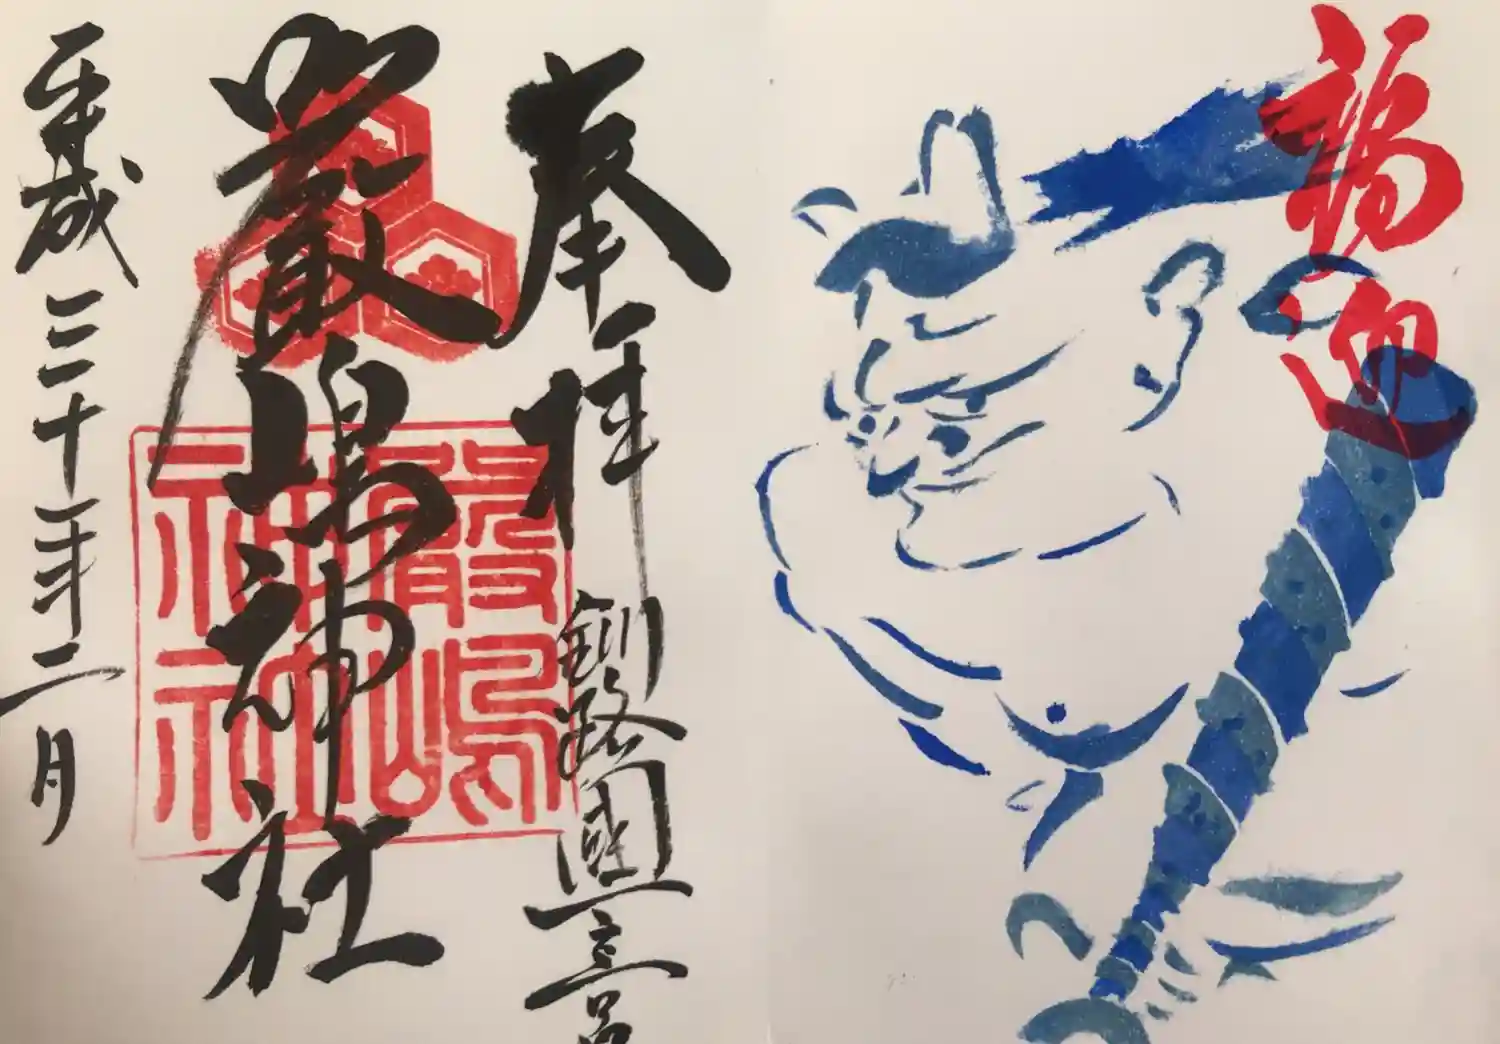 奉拝
釧路國一之宮
嚴嶋神社
平成三十一年二月
嚴嶋
神社
福迎